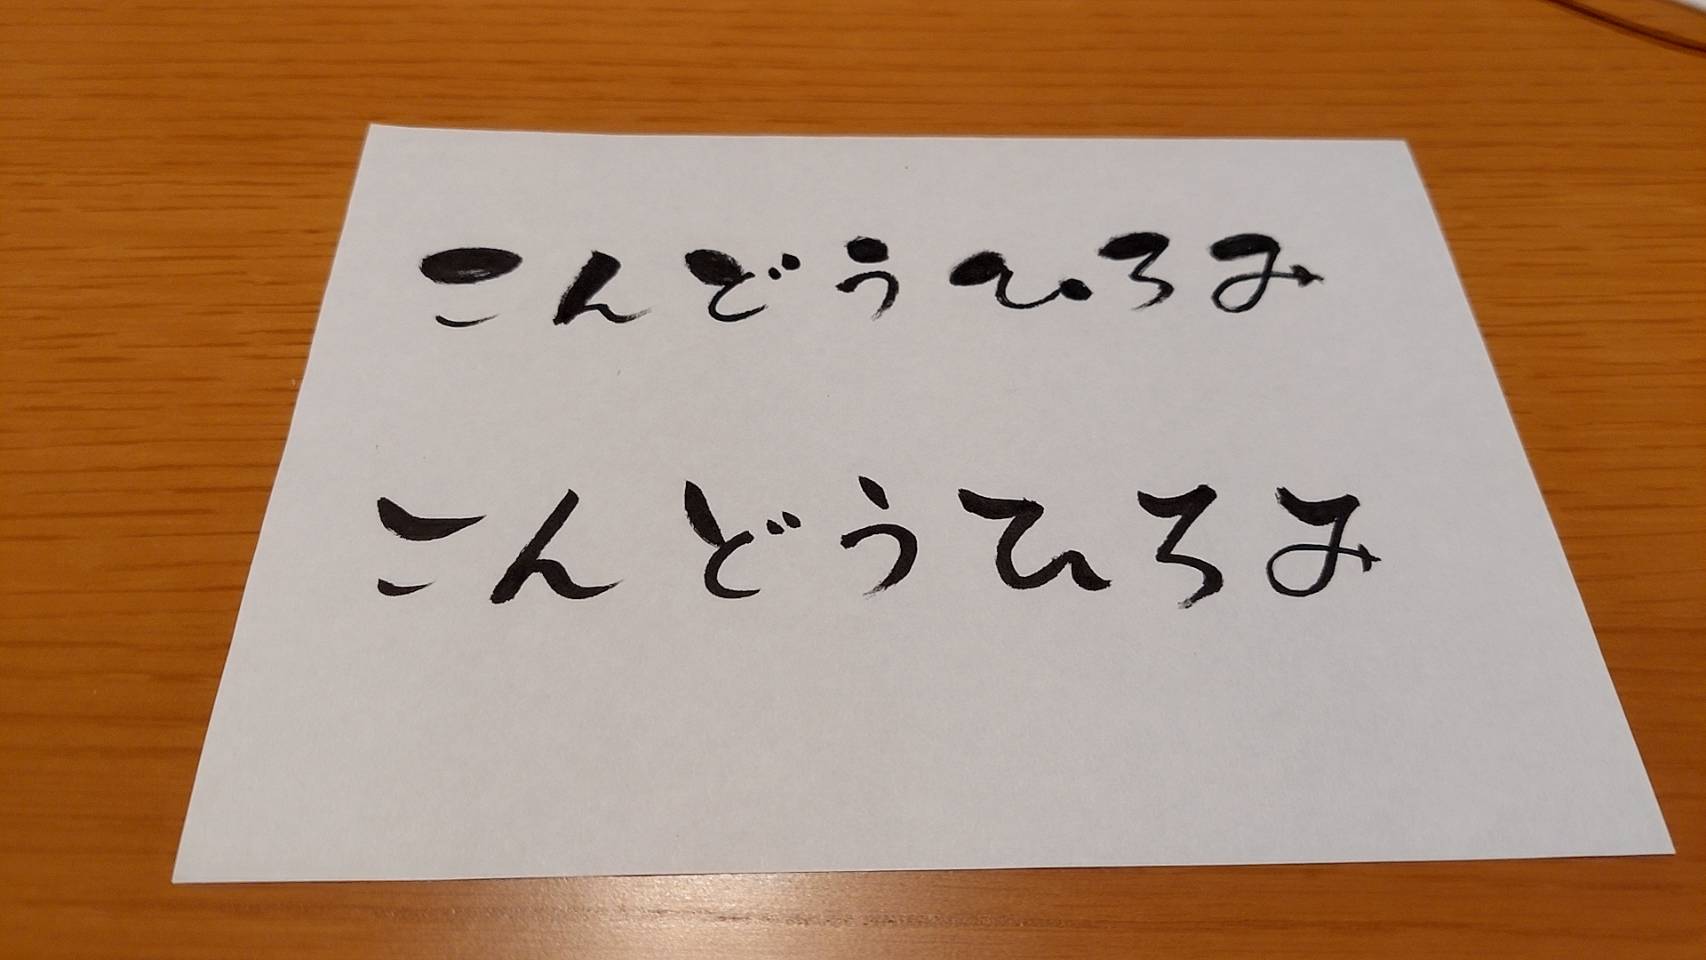 こんどうひろみ
こんどうひろみ